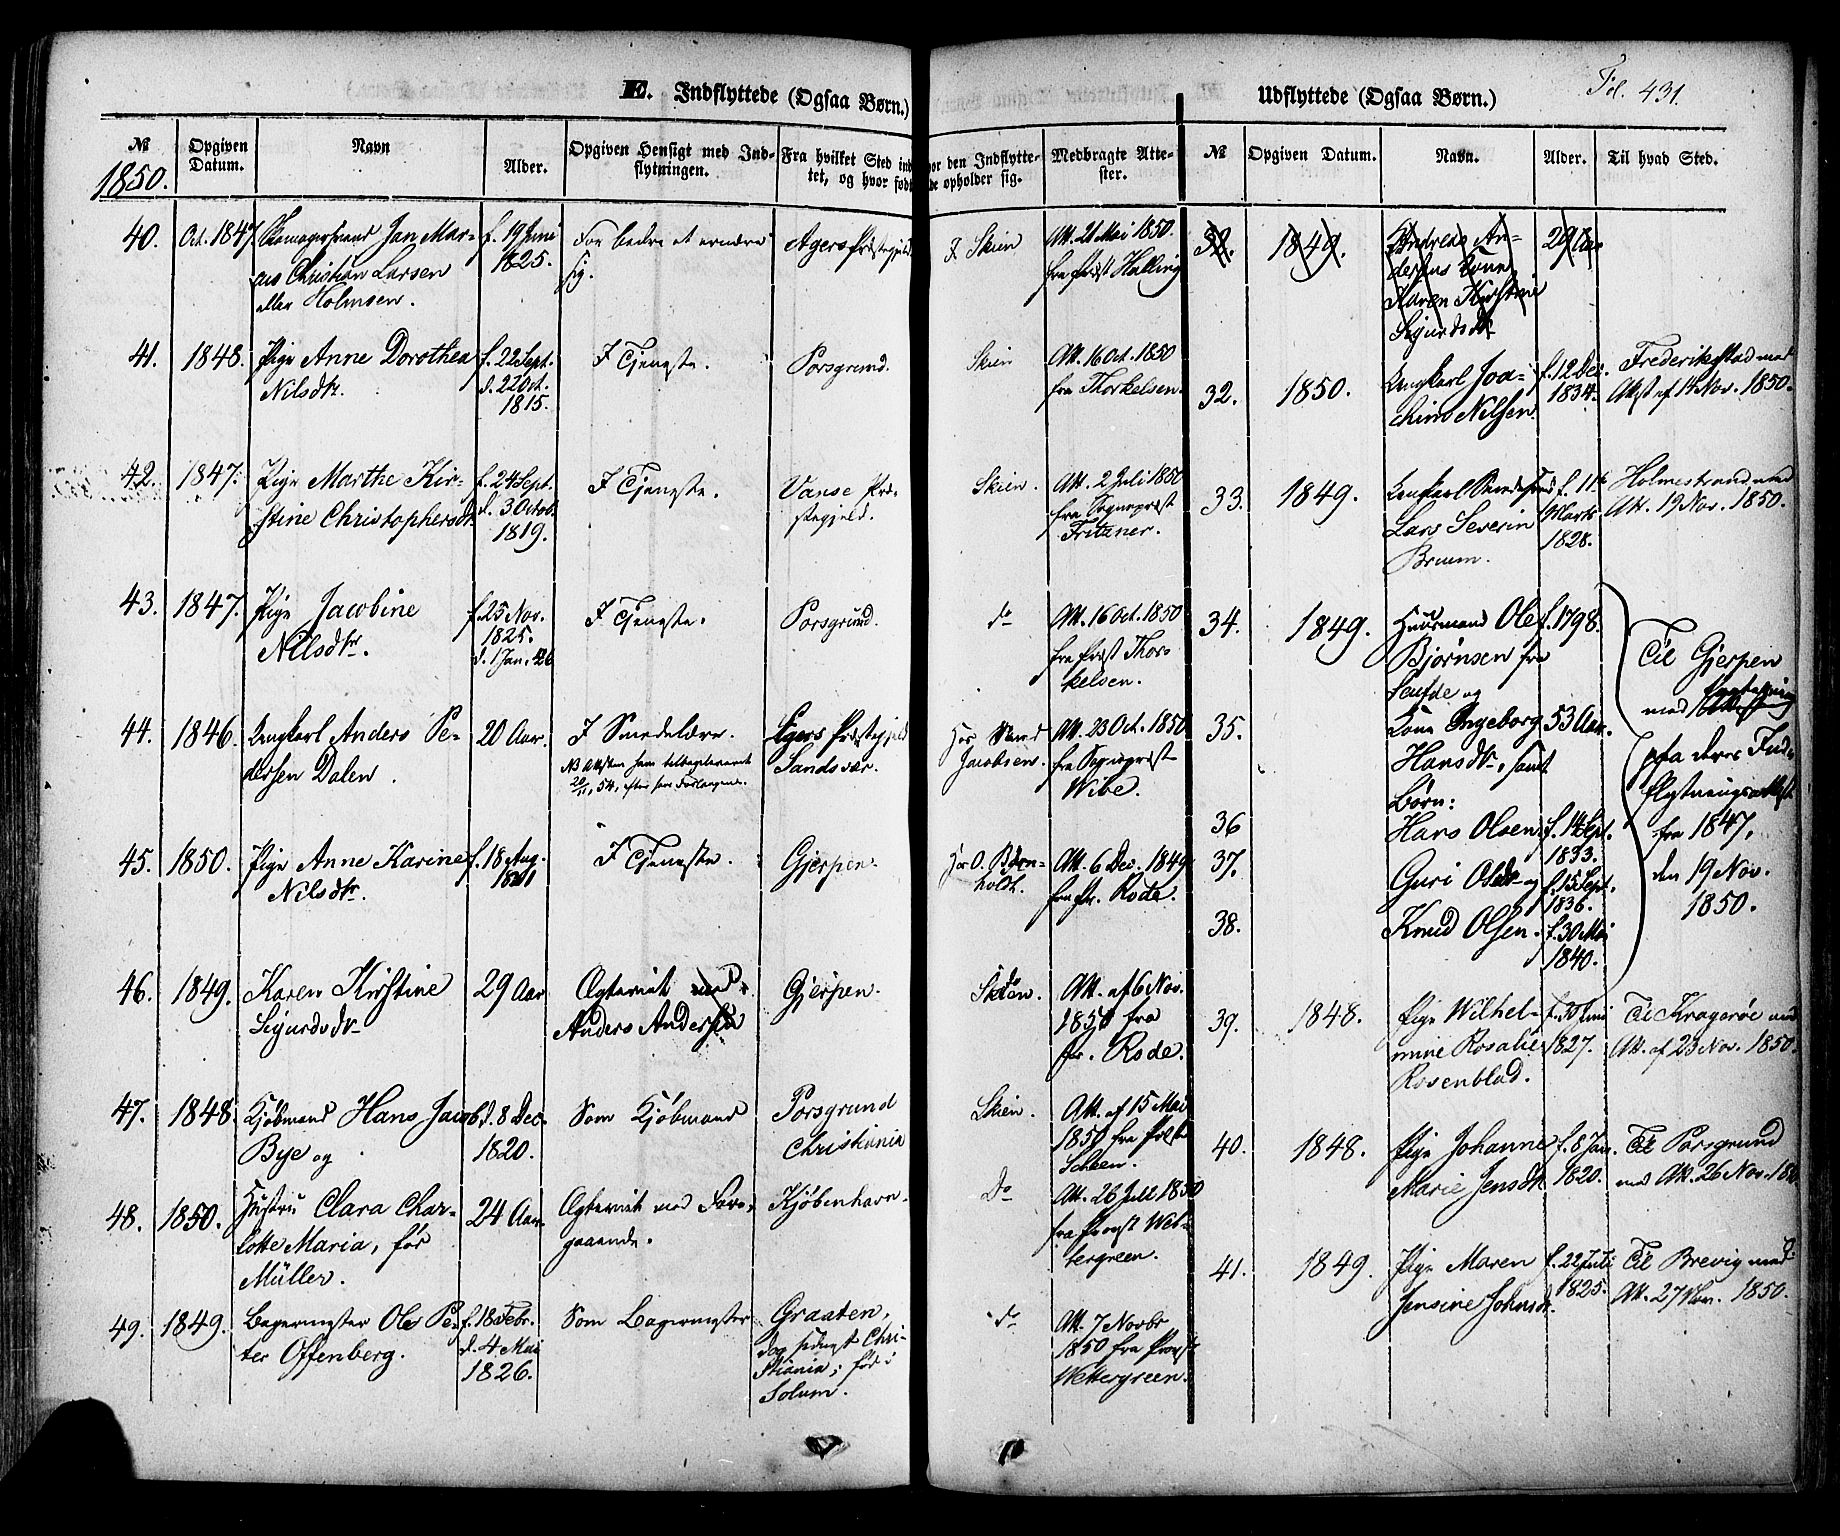 E. Indflyttede (Ogsaa Børn.)
Udflyttede (Ogsaa Børn.)
Fol. 431.
№ Opgiven Datum. Navn Alder. Opgiven Hensigt med Indflytningen. Fra hvilket Sted ind tet, og hvor født hvor den Indflyttede opholder sig. Medbragte Attester.
№ Opgiven Datum. Navn. Alder. Til hvad Sted.
1850.
40. Oct. 1847 Jan Mar- f. 19 Juni For bedre at ernære Agers Præstegjeld I Skien Att. 21 Mai 1850.
cus Christian Larsen 1825. sig. fra Præst Halling
eller Holmsen.
41. 1848. Pige Anne Dorothea f. 22 Sept. I Tjeneste. Porsgrund. Skien Att. 16 Oct. 1850
Nilsdtr. d. 22 Oct. fra Thorkelsen.
1815.
42. 1847. Pige Marthe Kir- f. 24 Sept. I Tjeneste. Vanse Præ- Skien. Att. 2 Juli 1850
stine Christophersdtr. d. 3 Octob. stegjeld. fra Sogneprest
1819. Fritzner.
43. 1847. Pige Jacobine f. 25 Nov. I Tjeneste. Porsgrund. do Att. 16 Oct. 1850
Nilsdtr. 1825. fra Præst Thor-
d. 1 Jan. 26 kelsen.
44. 1846. Ungkarl Anders Pe- 20 Aar. I Smedelære. Egers Præstegjeld Hos Att. 23 Oct. 1850
dersen Dalen. NB Attesten ham tilbageleveret Sandsvær. Jacobsen. fra Sogneprest
20/11, 54, efter hans Forlangende. Wibe.
45. 1850. Pige Anne Karine f. 18 Aug. I Tjeneste. Gjerpen. Hos O. Børn- Att. 6 Dec. 1849
Nilsdtr. holdt. fra Pr. Rode.
46. 1849. Karen Kirstine 29 Aar Ægteviet med Gjerpen. Skien. Att. af 6 Nov.
Sigurdsdtr Anders Andersen 1850 fra
Pr. Rode.
47. 1848 Kjøbmand Hans Jacob d. 8 Dec. Som Kjøbmand Porsgrund Skien. Att. af 15 Mai
Bye og 1820. Christiania 1850 fra Præst
Scheen.
48. 1850. Hustru Clara Char- 24 Aar. Ægteviet med Fore- Kjøbenhavn. Do Att. 26 Juli 1850
lotte Maria, før gaaende. fra Provst Wet-
Müller. tergreen.
49. 1849. Bagermester Ole Pe- f. 18 Febr. Som Bagermester Graaten, do Att. 7 Novbr
ter Offenberg. d. 4 Mai dog sidenst Chri- 1850 fra Provst
1826. stiania; før i Wettergreen.
Solum.
32. 1849. Andreas An- 29 Aar
dersens Kone
Karen Kirstine
Sigurdsdtr
32. 1850. Ungkarl Joa- f. 12 Dec. Frederikstad med
chim Nilsen. 1834. Attest af 14 Nov. 1850.
33. 1849. Ungkarl f. 11te Holmestrand med
Lars Severin Marts Att. 19 Nov. 1850.
Bruun. 1828.
34. 1849. Huusmand Ole f. 1798.
Bjørnsen fra
Seufde og
35. Kone Ingeborg 53 Aar.
Hansdtr, samt
Børn:
36 Hans Olsen, f. 14 Sept.
1833.
37. Guri Olsdtr og f. 15 Sept.
1836.
38. Knud Olsen. f. 30 Mai
1840.
Til Gjerpen
med
paa deres Ind-
flytningsattest
fra 1847,
den 19 Nov.
1850.
39. 1848. Pige Wilhel- f. 30 Juni Til Kragerøe med
mine Rosalie 1827. Att. af 23 Nov. 1850.
Rosenblad.
40. 1848. Pige Johanne f. 8 Jan. Til Porsgrund
Marie Jensdtr 1820. med Att. 26 Nov.
41. 1849. Pige Maren f. 22 Juli Til Brevig med
Jensine Johnsdtr. 1825. Att. 27 Nov. 1850.